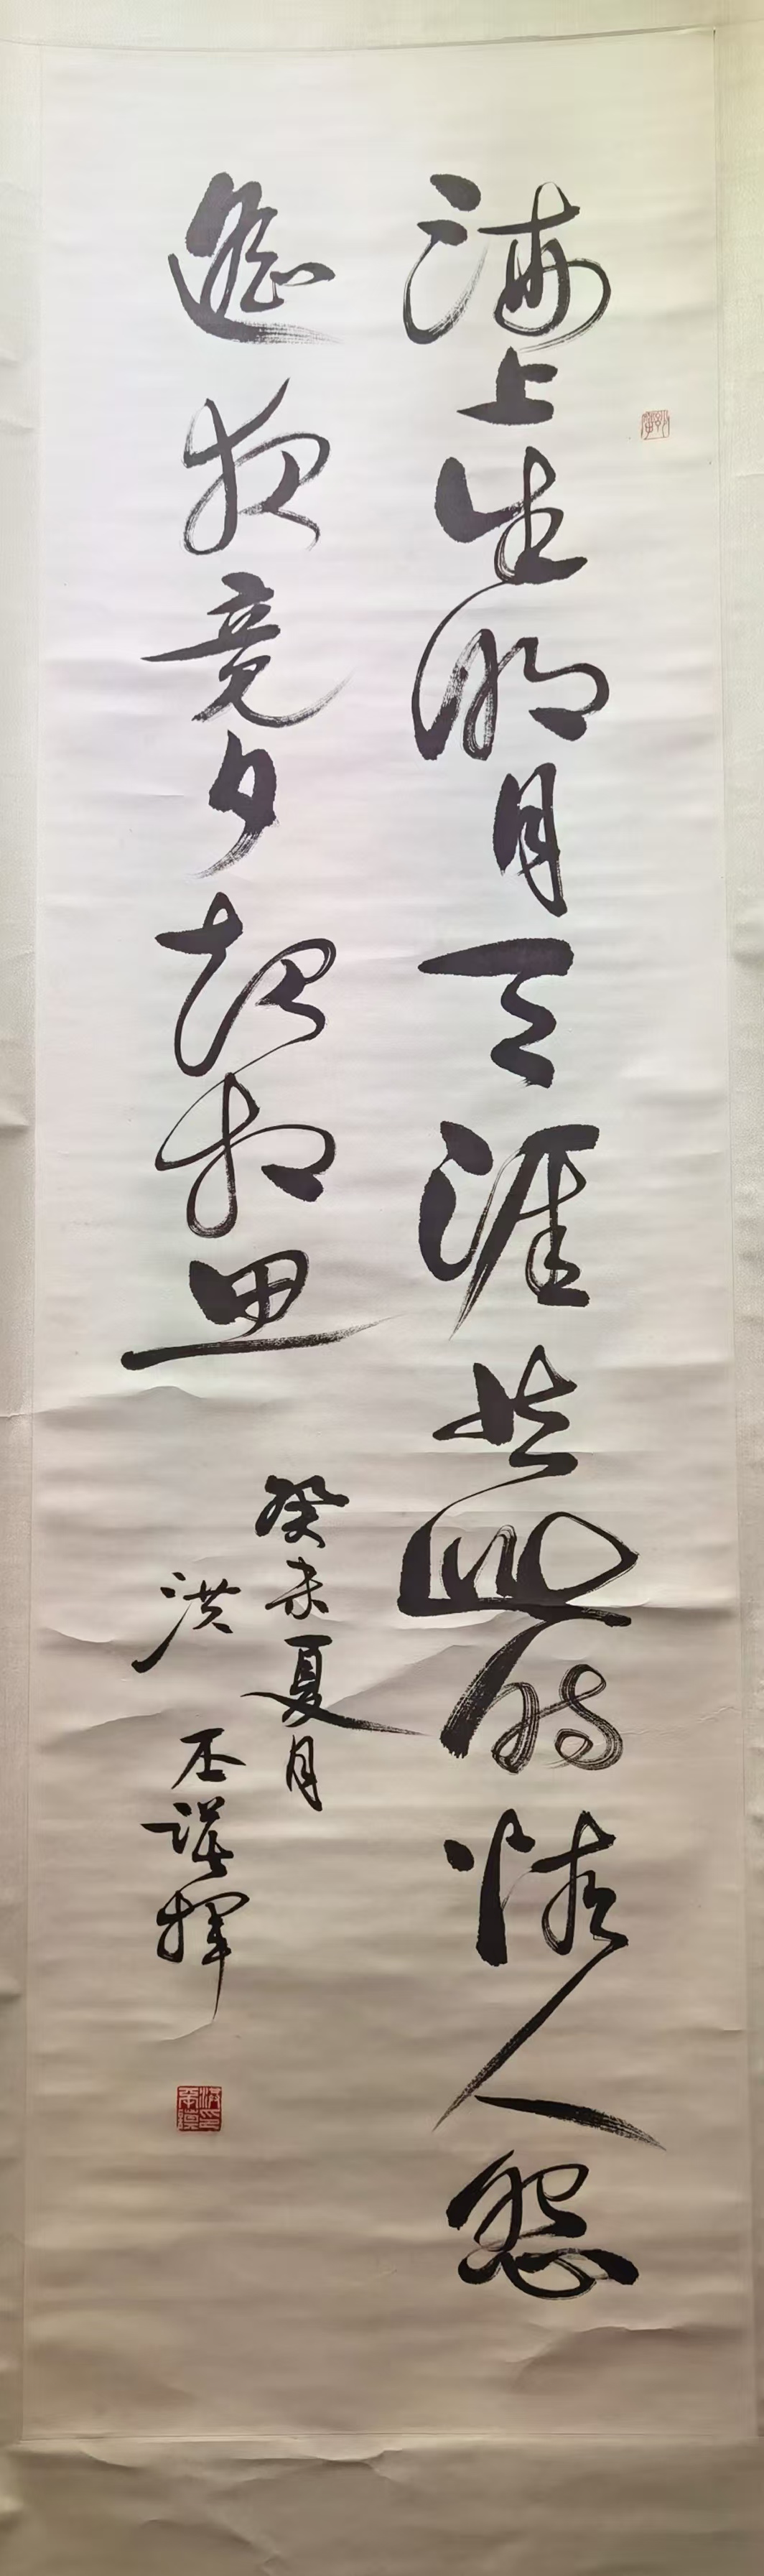 海上生明月天涯共此時情人怨
遙夜竟夕起相思
癸未夏月
洪丕謨揮